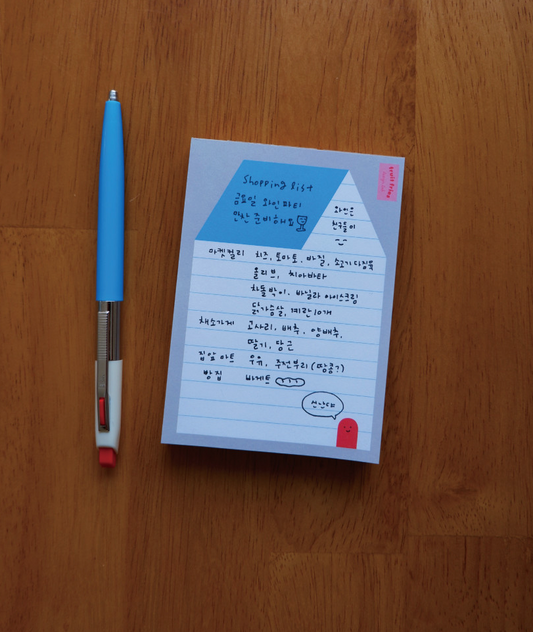 Shopping list
금요일 와인파티
만찬 준비해요
와인은
친구들이
마켓컬리 치즈, 토마토, 바질, 소고기다짐육
올리브, 치아바타
차돌박이, 바닐라 아이스크림
닭가슴살, 계란 10개
채소가게 고사리, 배추, 양배추,
딸기, 당근
집앞 마트 우유, 주전부리 (땅콩?)
빵집 바게트
신난다